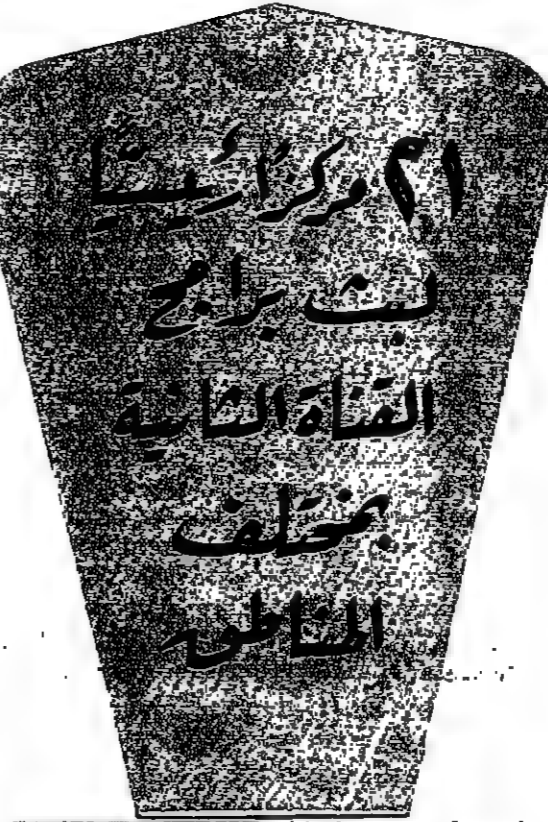 ٢١ مركزًا رئيسيًا
لبث برامج
القناة الثانية
بمختلف
المناطق